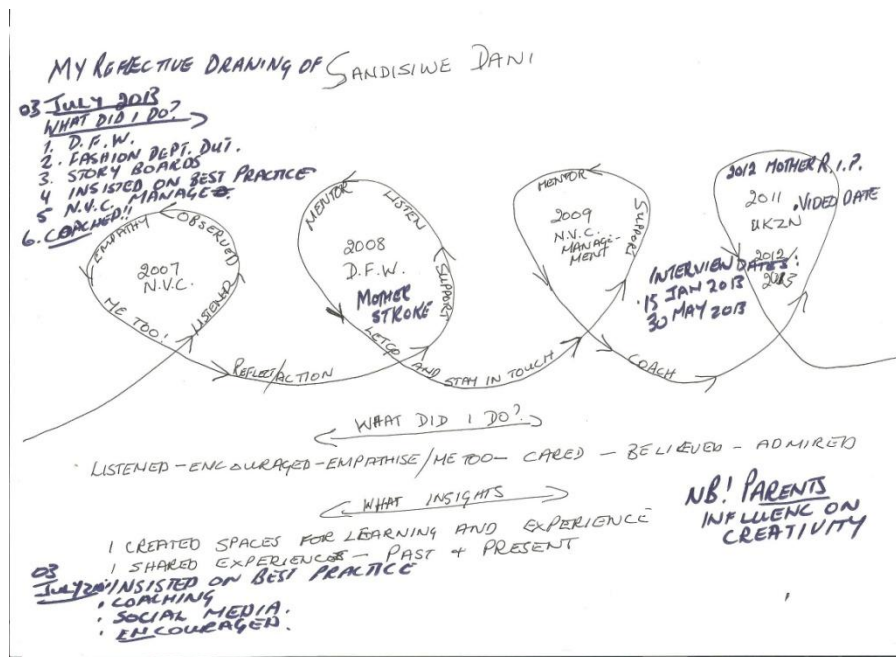 MY REFLECTIVE DRAWING OF SANDISIWE DANI
03 JULY 2013
WHAT DID I DO?
1. D.F.W.
2. FASHION DEPT. DUT.
3. STORY BOARDS
4 INSISTED ON BEST PRACTICE
5 N.V.C. MANAGE
6. COACHED!!
EMPATHY
OBSERVED
LISTENED
ME TOO!
2007
N.V.C.
REFLECT/ACTION
MENTOR
LISTEN
SUPPORT
2008
D.F.W.
MOTHER
STROKE
LETGO AND STAY IN TOUCH
MENTOR
SUPPORT
2009
N.V.C.
MANAGE-
MENT
COACH
2012 MOTHER R.I.P.
2011 .VIDEO DATE
UKZN
2012/
2013
INTERVIEW DATES:
. 15 JAN 2013
30 MAY 2013
WHAT DID I DO?
LISTENED - ENCOURAGED - EMPATHISE/ME TOO - CARED - BELIEVED - ADMIRED
WHAT INSIGHTS
I CREATED SPACES FOR LEARNING AND EXPERIENCE
I SHARED EXPERIENCES - PAST + PRESENT
03
JULY INSISTED ON BEST PRACTICE
. COACHING
. SOCIAL MEDIA.
. ENCOURAGEN.
NB! PARENTS
INFLUENC ON
CREATIVITY